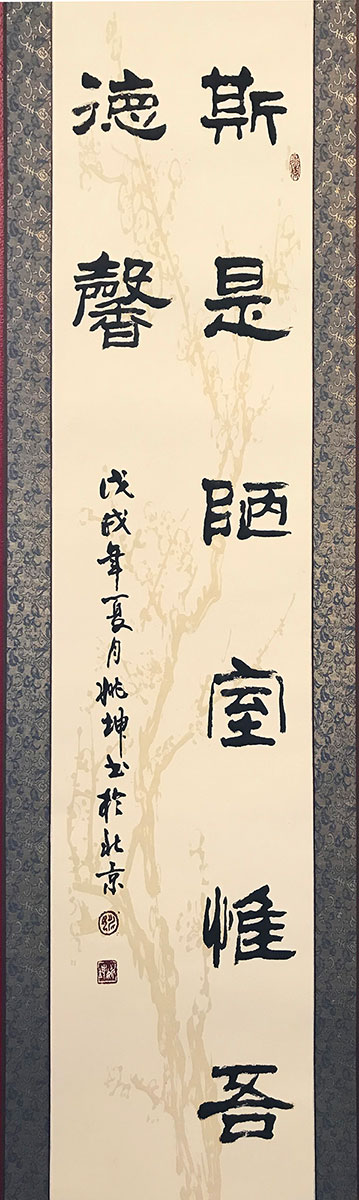 斯是陋室惟吾
德馨
戊戌年夏月姚坤书於北京